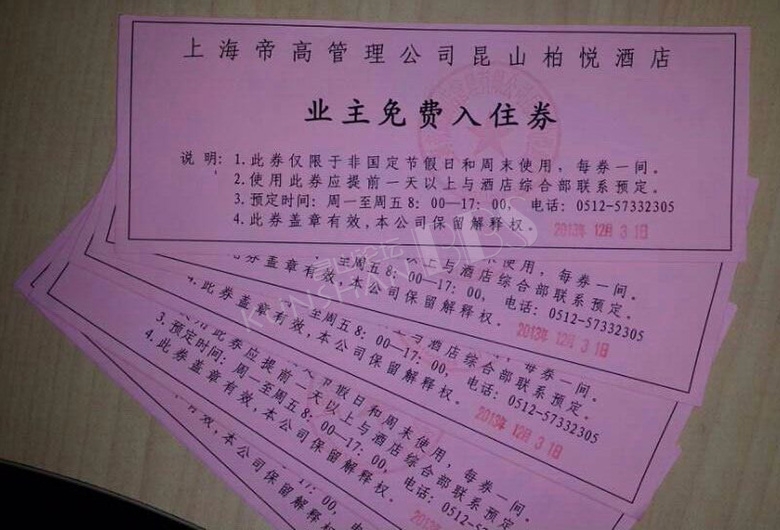 上海帝高管理公司昆山柏悦酒店
业主免费入住券
说明：1.此券仅限于非国定节假日和周末使用，每券一间。
2.使用此券应提前一天以上与酒店综合部联系预定。
3.预定时间：周一至周五8：00—17：00， 电话：0512-57332305
4.此券盖章有效,本公司保留解释权。
2013年 12月 3 1日
KUNSHAN BBS
至周五8：00—17：00,
以上与酒店综合部联系预定。
每券一间。
电话：0512-57332305
4.此券盖章有效,本公司保留解释权。
2013年 12月 3 1日
至周五8：00—17：00,
酒店综合部联系预定。
每券一间。
电话：0512-57332305
4.此券盖章有效,本公司保留解释权。
2013年 12月 3 1日
此券应提前一天以上与酒店综合部联系预定。
假日和周末使用，每券一间。
3.预定时间：周一至周五8：00—17：00, 电话：0512-57332305
4.此券盖章有效,本公司保留解释权。
2013年 12月 3 1日
有效,本公司保留解释权。
00—17：00,
与酒店综合部联系预定。
使用，每券一间。
电话：0512-57332305
4.此券盖章有效,本公司保留解释权。
2013年